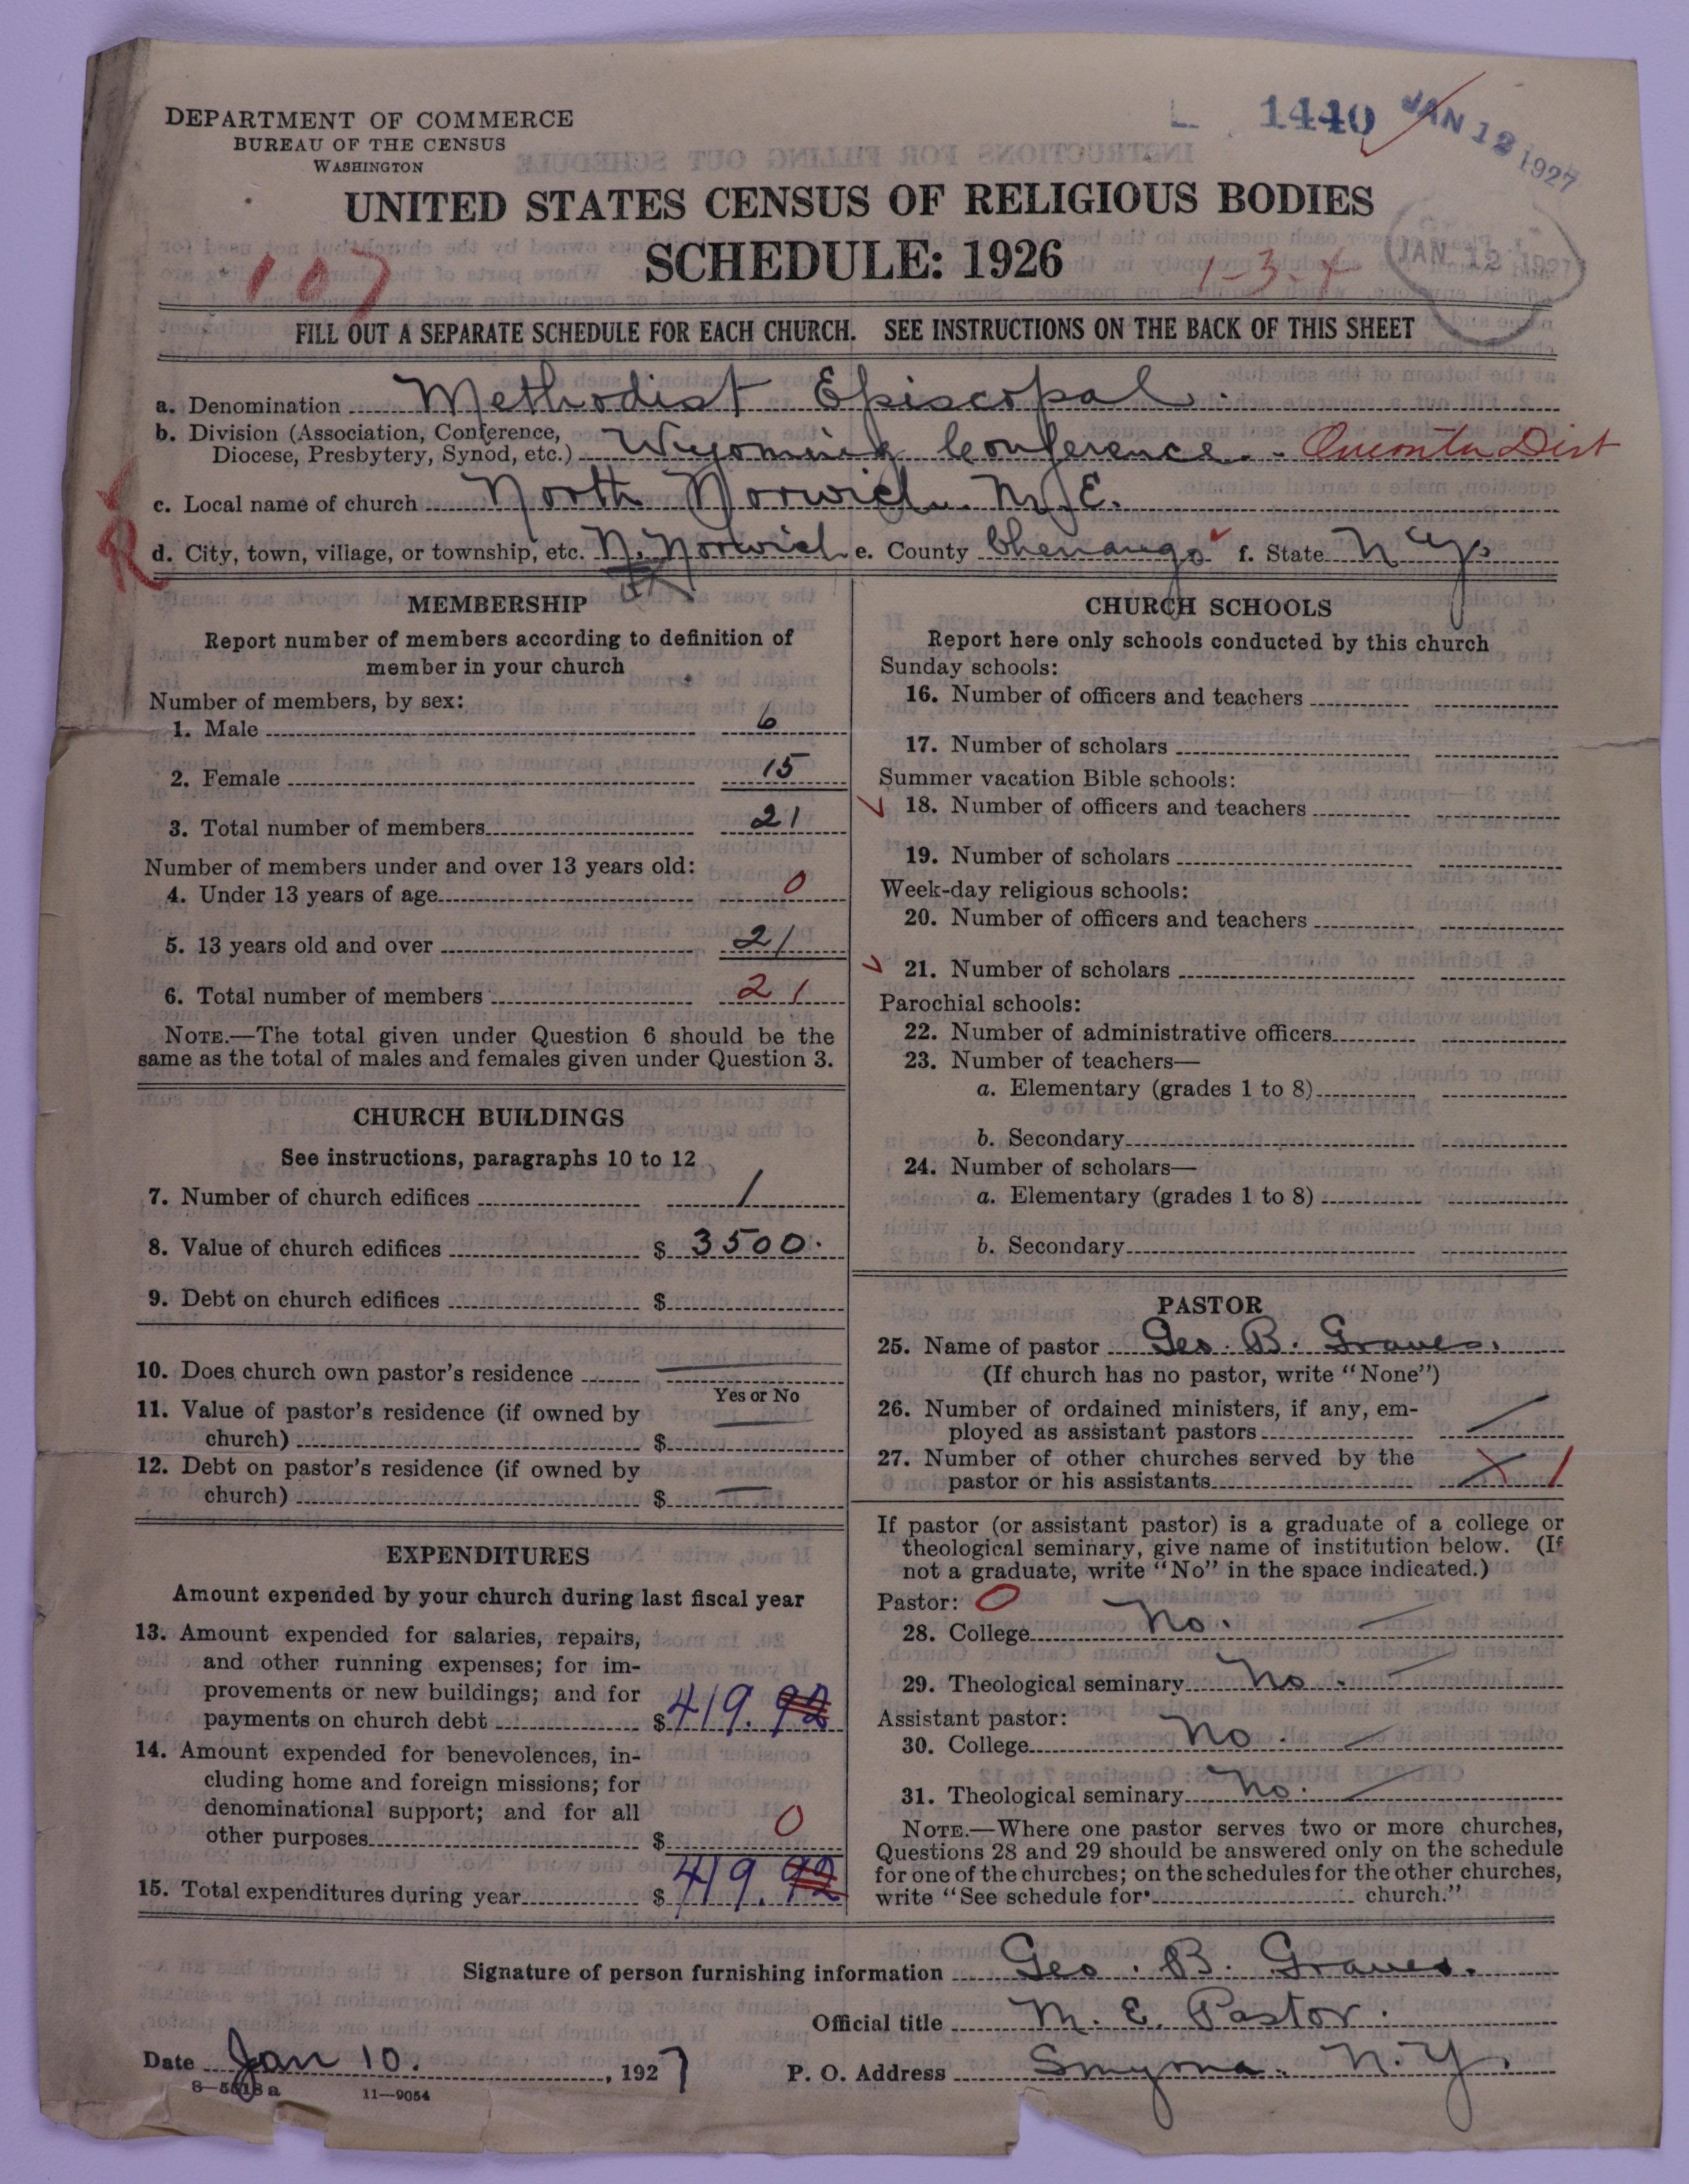 1440 JAN 12 1927
DEPARTMENT OF COMMERCE
BUREAU OF THE CENSUS
WASHINGTON
UNITED STATES CENSUS OF RELIGIOUS BODIES
SCHEDULE: 1926
107
1-3-
JAN 12 1927
FILL OUT A SEPARATE SCHEDULE FOR EACH CHURCH. SEE INSTRUCTIONS ON THE BACK OF THIS SHEET
a. Denomination Methodist Episcopal.
b. Division (Association, Conference,
Diocese, Presbytery, Synod, etc.) Wyoming Conference. Oneonta Dist
c. Local name of church North Norwich. M. E.
R
d. City, town, village, or township, etc. N. Norwich e. County Chenango f. State N. Y.
MEMBERSHIP
Report number of members according to definition of
member in your church
Number of members, by sex:
1. Male 6
2. Female 15
3. Total number of members 21
Number of members under and over 13 years old:
4. Under 13 years of age 0
5. 13 years old and over 21
6. Total number of members 21
NOTE.—The total given under Question 6 should be the
same as the total of males and females given under Question 3.
CHURCH BUILDINGS
See instructions, paragraphs 10 to 12
7. Number of church edifices 1
8. Value of church edifices $ 3500.
9. Debt on church edifices $
10. Does church own pastor's residence —
Yes or No
11. Value of pastor's residence (if owned by
church) $ —
12. Debt on pastor's residence (if owned by
church) $ —
EXPENDITURES
Amount expended by your church during last fiscal year
13. Amount expended for salaries, repairs,
and other running expenses; for im-
provements or new buildings; and for
payments on church debt $ 419.92
14. Amount expended for benevolences, in-
cluding home and foreign missions; for
denominational support; and for all
other purposes $ 0
15. Total expenditures during year $ 419.92
CHURCH SCHOOLS
Report here only schools conducted by this church
Sunday schools:
16. Number of officers and teachers
17. Number of scholars
Summer vacation Bible schools:
18. Number of officers and teachers
19. Number of scholars
Week-day religious schools:
20. Number of officers and teachers
21. Number of scholars
Parochial schools:
22. Number of administrative officers
23. Number of teachers—
a. Elementary (grades 1 to 8)
b. Secondary
24. Number of scholars—
a. Elementary (grades 1 to 8)
b. Secondary
PASTOR
25. Name of pastor Geo. B. Graves.
(If church has no pastor, write "None")
26. Number of ordained ministers, if any, em-
ployed as assistant pastors
27. Number of other churches served by the
pastor or his assistants 1
If pastor (or assistant pastor) is a graduate of a college or
theological seminary, give name of institution below. (If
not a graduate, write "No" in the space indicated.)
Pastor: 0
28. College No.
29. Theological seminary No.
Assistant pastor:
30. College No.
31. Theological seminary No.
NOTE.—Where one pastor serves two or more churches,
Questions 28 and 29 should be answered only on the schedule
for one of the churches; on the schedules for the other churches,
write "See schedule for church."
Signature of person furnishing information Geo. B. Graves.
Official title M. E. Pastor.
Date Jan 10. , 1927 P. O. Address Smyrna. N. Y.
8—5518 a 11—9054